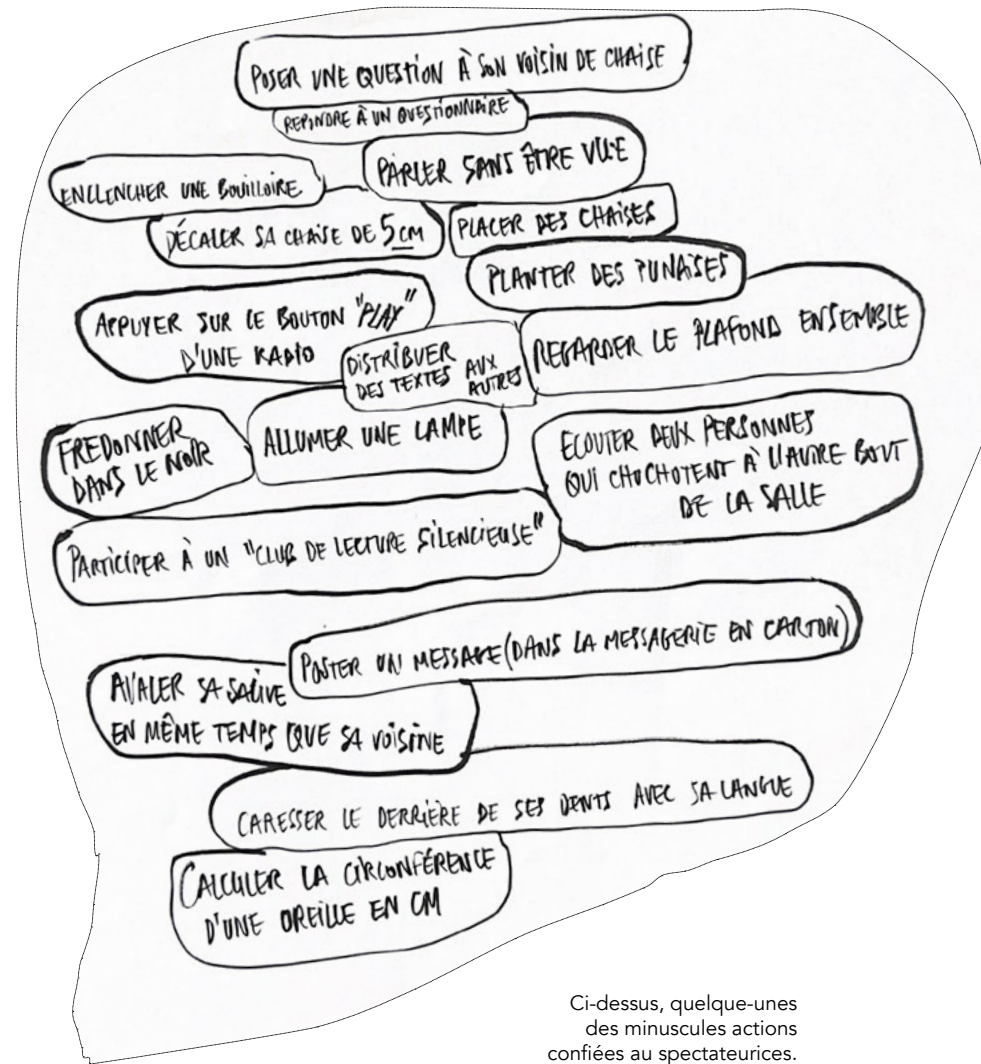 POSER UNE QUESTION À SON VOISIN DE CHAISE
REPONDRE À UN QUESTIONNAIRE
PARLER SANS ÊTRE VU·E
ENCLENCHER UNE BOUILLOIRE
DÉCALER SA CHAISE DE 5 CM
PLACER DES CHAISES
PLANTER DES PUNAISES
APPUYER SUR LE BOUTON "PLAY"
D'UNE RADIO
DISTRIBUER
DES TEXTES AUX
AUTRES
REGARDER LE PLAFOND ENSEMBLE
FREDONNER
DANS LE NOIR
ALLUMER UNE LAMPE
ECOUTER DEUX PERSONNES
QUI CHUCHOTENT À L'AUTRE BOUT
DE LA SALLE
PARTICIPER À UN "CLUB DE LECTURE SILENCIEUSE"
POSTER UN MESSAGE (DANS LA MESSAGERIE EN CARTON)
AVALER SA SALIVE
EN MÊME TEMPS QUE SA VOISINE
CARESSER LE DERRIÈRE DE SES DENTS AVEC SA LANGUE
CALCULER LA CIRCONFÉRENCE
D'UNE OREILLE EN CM
Ci-dessus, quelque-unes
des minuscules actions
confiées au spectateurices.